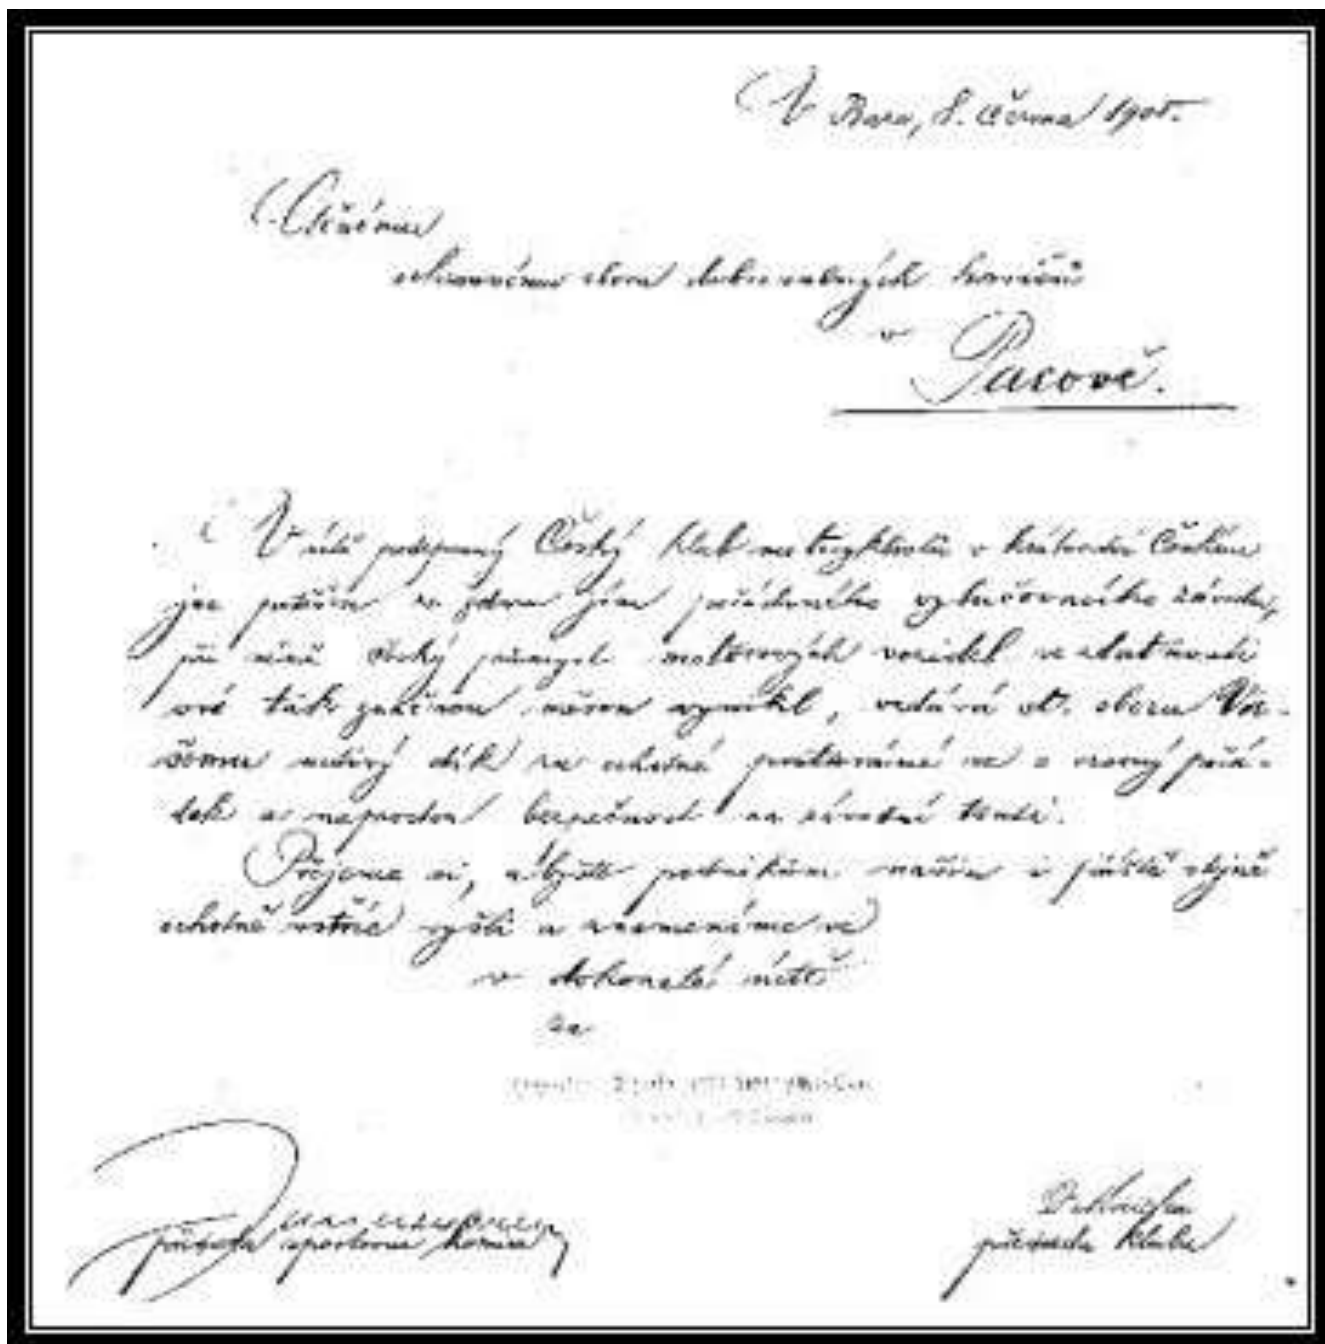 V 8. června 1905.
Ctěnému
sboru dobrovolných hasičů
v
Pacově.
V úctě podepsaný Český klub motocyklistů v
jsa potěšen ze jím pořádaného vylučovacího závodu,
při němž český průmysl motorových vozidel
své tak značnou měrou vynikl, vzdává sl. sboru Va-
šemu uctivý dík za ochotné postarání se o vzorný pořá-
dek a naprostou bezpečnost na závodní trati.
Přejeme si, abyste podnikům našim i příště stejně
ochotně vstříc vyšli a znamenáme se
v dokonalé úctě
za
předseda sportovní komise
předseda klubu